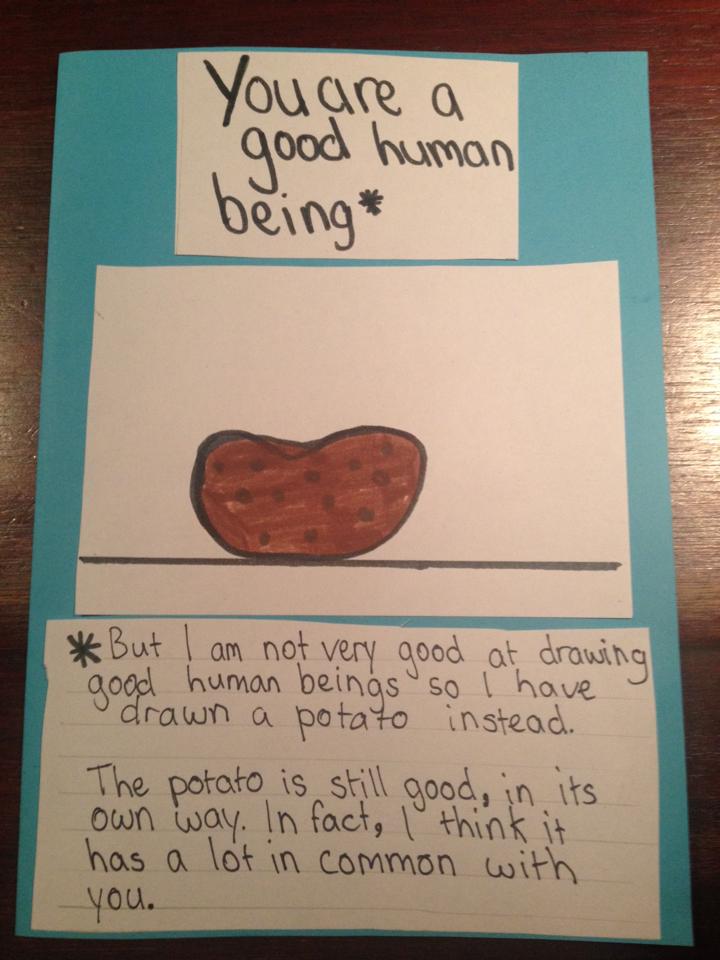 You are a
good human
being*
*But I am not very good at drawing
good human beings so I have
drawn a potato instead.
The potato is still good, in its
own way. In fact, I think it
has a lot in common with
you.